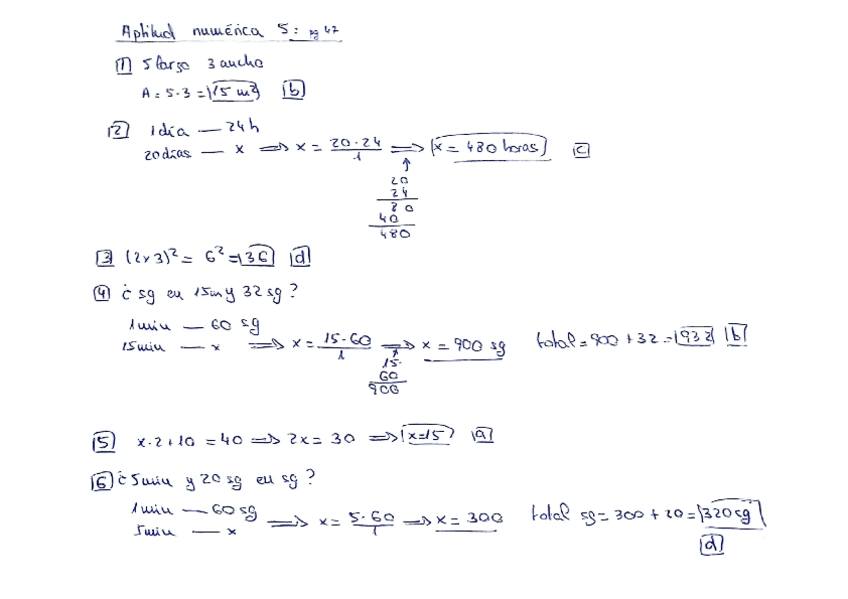 Aptitud numérica 5: pg 47
1 5 largo 3 ancho
A = 5·3 = 15 m² b
2 1 día — 24 h
20 días — x ⟹ x = 20·24/1 ⟹ x = 480 horas c
20
24
80
40
480
3 (2x3)² = 6² = 36 d
4 ¿ sg en 15 m y 32 sg ?
1 min — 60 sg
15 min — x ⟹ x = 15·60/1 ⟹ x = 900 sg total = 900 + 32 = 932 b
15
60
900
5 x·2 + 10 = 40 ⟹ 2x = 30 ⟹ x=15 a
6 ¿ 5 min y 20 sg en sg ?
1 min — 60 sg
5 min — x ⟹ x = 5·60/1 ⟹ x = 300 total sg = 300 + 20 = 320 sg
d